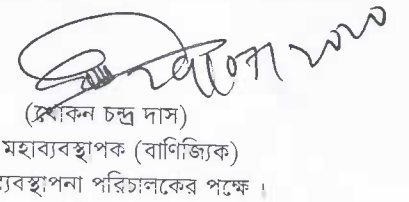 (খোকন চন্দ্র দাস)
মহাব্যবস্থাপক (বাণিজ্যিক)
ব্যবস্থাপনা পরিচালকের পক্ষে।